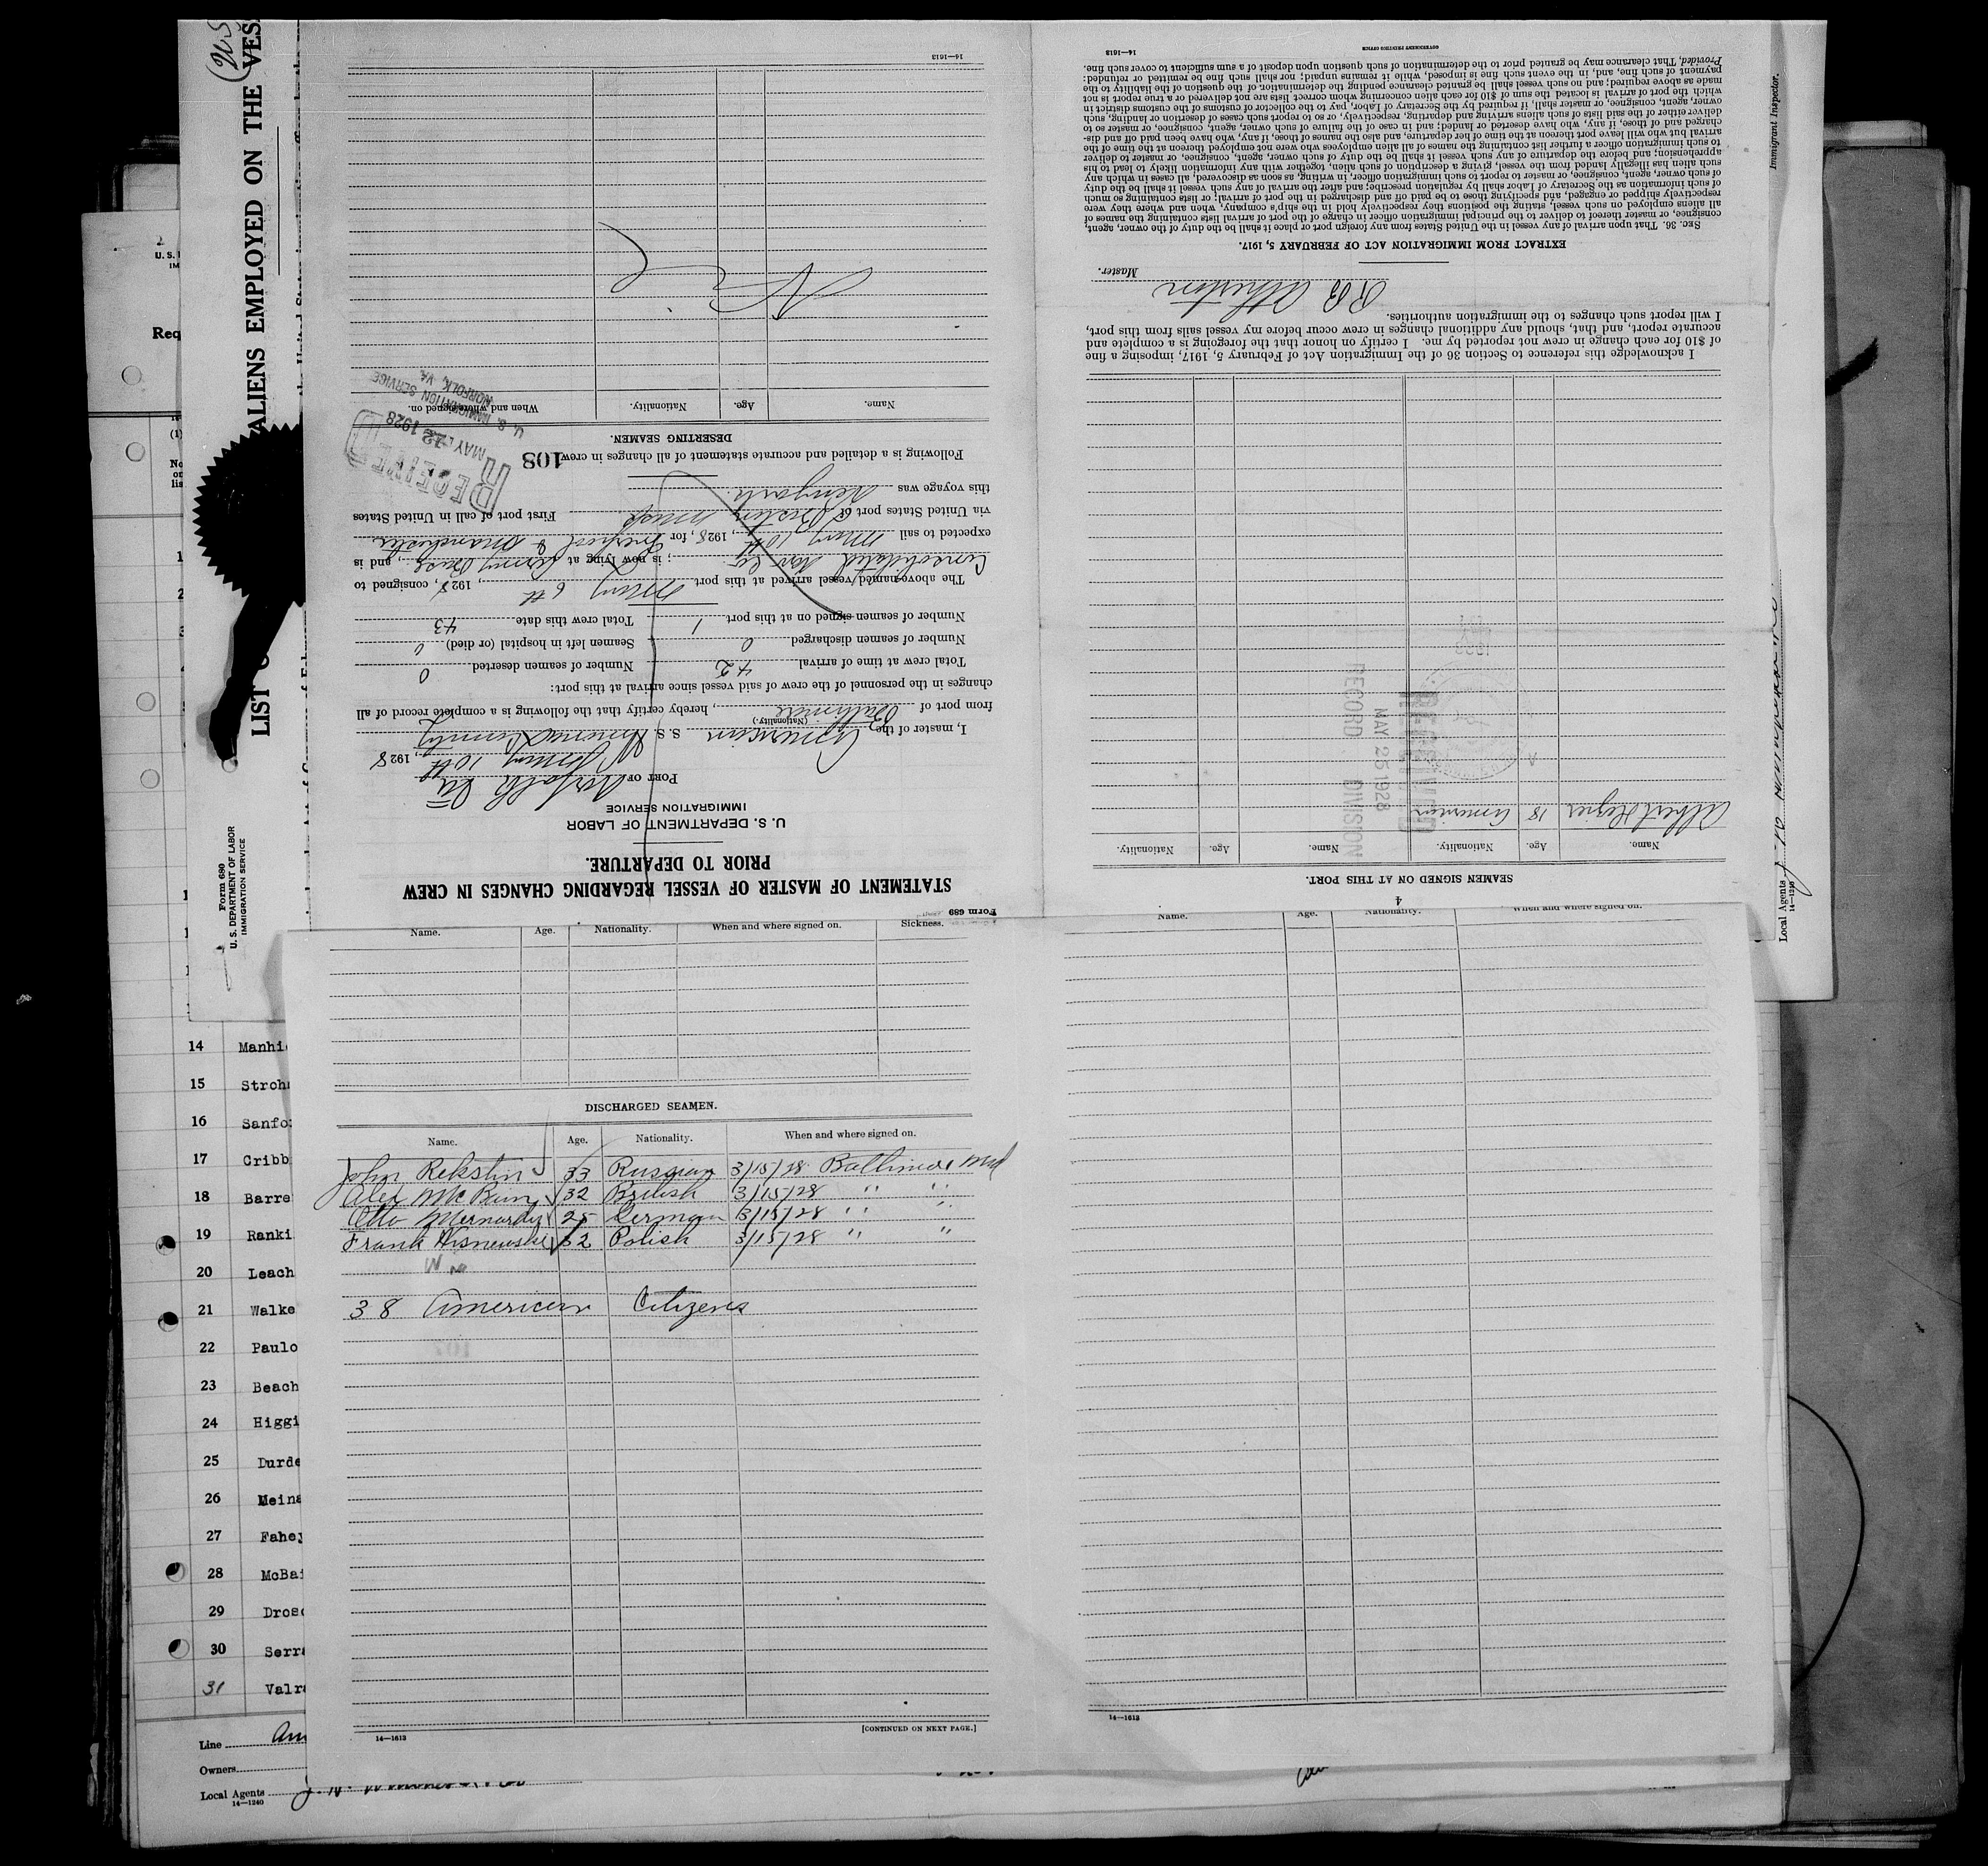 14—1613
GOVERNMENT PRINTING OFFICE
14—1613
ALIENS EMPLOYED ON THE VES
LIST
Form 680
U. S. DEPARTMENT OF LABOR
IMMIGRATION SERVICE
U. S.
IM
Req
Form 689
STATEMENT OF MASTER OF VESSEL REGARDING CHANGES IN CREW
PRIOR TO DEPARTURE.
U. S. DEPARTMENT OF LABOR
IMMIGRATION SERVICE
PORT OF Norfolk Va
May 10th, 1928
I, master of the American S. S.
(Nationality.)
from port of Baltimore, hereby certify that the following is a complete record of all
changes in the personnel of the crew of said vessel since arrival at this port:
Total crew at time of arrival 42 Number of seamen deserted 0
Number of seamen discharged 0 Seamen left in hospital (or died) 0
Number of seamen signed on at this port 1 Total crew this date 43
The above-named vessel arrived at this port May 6th, 1928, consigned to
Consolidated Nav Co; is now lying at Army Base, and is
expected to sail May 10th, 1928, for Liverpool & Manchester
via United States port of Boston Mass First port of call in United States
this voyage was Newyork
Following is a detailed and accurate statement of all changes in crew
108
RECEIVED
MAY 12 1928
U. S. IMMIGRATION SERVICE
NORFOLK, VA.
DESERTING SEAMEN.
Name. Age. Nationality. When and where signed on.
4
SEAMEN SIGNED ON AT THIS PORT.
Name. Age. Nationality. Name. Age. Nationality.
Albert 18 American
RECEIVED
MAY 25 1928
RECORD DIVISION
I acknowledge this reference to Section 36 of the Immigration Act of February 5, 1917, imposing a fine
of $10 for each change in crew not reported by me. I certify on honor that the foregoing is a complete and
accurate report, and that, should any additional changes in crew occur before my vessel sails from this port,
I will report such changes to the immigration authorities.
Atherton
Master.
EXTRACT FROM IMMIGRATION ACT OF FEBRUARY 5, 1917.
SEC. 36. That upon arrival of any vessel in the United States from any foreign port or place it shall be the duty of the owner, agent,
consignee, or master thereof to deliver to the principal immigration officer in charge of the port of arrival lists containing the names of
all aliens employed on such vessel, stating the positions they respectively hold in the ship's company, when and where they were
respectively shipped or engaged, and specifying those to be paid off and discharged in the port of arrival; or lists containing so much
of such information as the Secretary of Labor shall by regulation prescribe; and after the arrival of any such vessel it shall be the duty
of such owner, agent, consignee, or master to report to such immigration officer, in writing, as soon as discovered, all cases in which any
such alien has illegally landed from the vessel, giving a description of such alien, together with any information likely to lead to his
apprehension; and before the departure of any such vessel it shall be the duty of such owner, agent, consignee, or master to deliver
to such immigration officer a further list containing the names of all alien employees who were not employed thereon at the time of the
arrival but who will leave port thereon at the time of her departure, and also the names of those, if any, who have been paid off and dis-
charged and of those, if any, who have deserted or landed; and in case of the failure of such owner, agent, consignee, or master so to
deliver either of the said lists of such aliens arriving and departing, respectively, or so to report such cases of desertion or landing, such
owner, agent, consignee, or master shall, if required by the Secretary of Labor, pay to the collector of customs of the customs district in
which the port of arrival is located the sum of $10 for each alien concerning whom correct lists are not delivered or a true report is not
made as above required; and no such vessel shall be granted clearance pending the determination of the question of the liability to the
payment of such fine, and, in the event such fine is imposed, while it remains unpaid; nor shall such fine be remitted or refunded:
Provided, That clearance may be granted prior to the determination of such question upon deposit of a sum sufficient to cover such fine.
Immigrant Inspector.
Local Agents
14—1240
Name. Age. Nationality. When and where signed on. Sickness.
Name. Age. Nationality. When and where signed on.
DISCHARGED SEAMEN.
Name. Age. Nationality. When and where signed on.
John Rekstin 33 Russian 3/15/28 Baltimore Md
Alex 32 British 3/15/28 " "
Otto 25 German 3/15/28 " "
Frank Wisnewski 32 Polish 3/15/28 " "
38 American Citizens
[CONTINUED ON NEXT PAGE.]
14—1613
14—1613
14 Manhi
15 Stroh
16 Sanfo
17 Cribb
18 Barre
19 Ranki
20 Leach
21 Walke
22 Paulo
23 Beach
24 Higgi
25 Durde
26 Meina
27 Fahey
28 McBai
29 Drosc
30 Serra
31 Valra
Line Am
Owners
Local Agents
14—1240